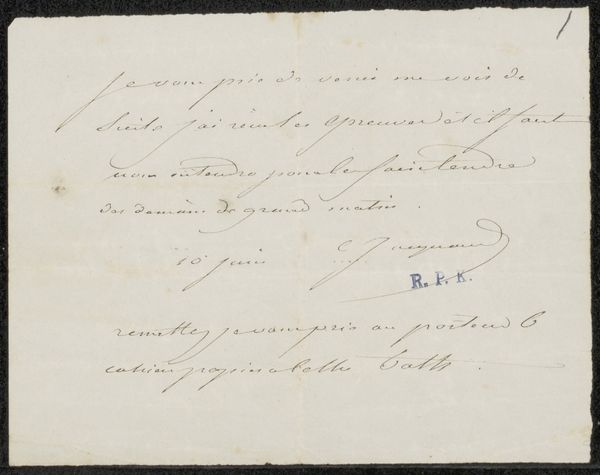 1
Je vous prie de venir me voir de
suite j'ai reçu les épreuves et il faut
nous entendre pour les faire tendre
dès demain de grand matin.
10 juin C Jacquand
R. P. K.
remettez je vous prie au porteur le
cahier papier